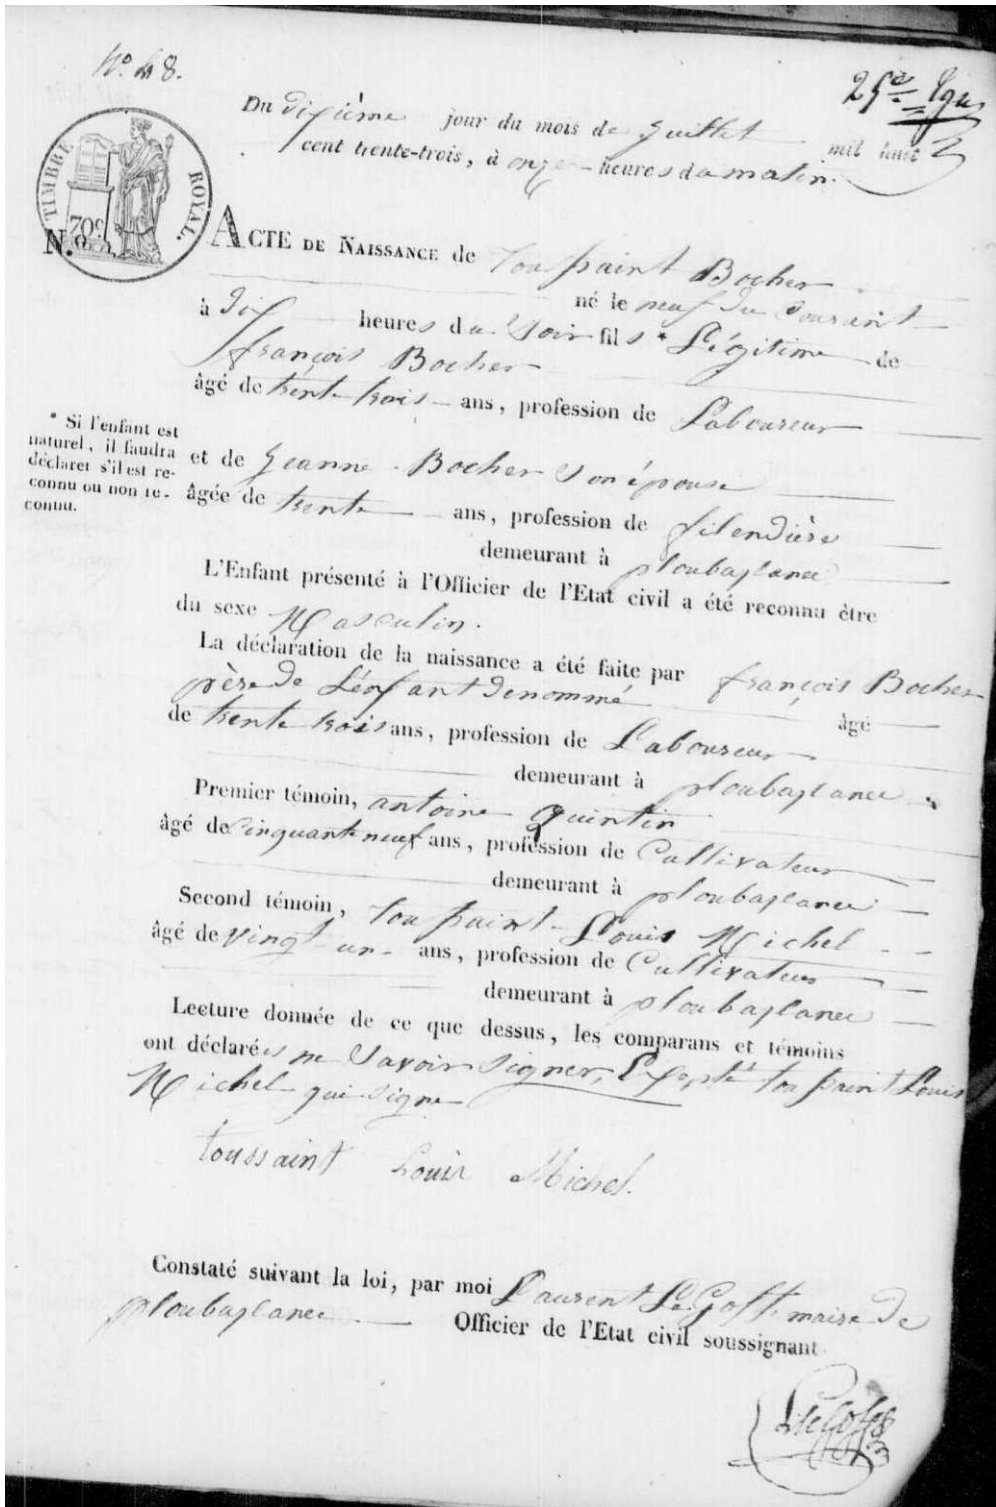 N.º 48.
25e
Du dixième jour du mois de Juillet mil huit
cent trente-trois, à onze heures du matin.
TIMBRE ROYAL.
70c
N.º
ACTE DE NAISSANCE de Toussaint Bocher
né le neuf du Courant
à dix heures du Soir fils * Légitime de
françois Bocher
âgé de trente trois ans, profession de Laboureur
* Si l'enfant est
naturel, il faudra
déclarer s'il est re-
connu ou non re-
connu.
et de Jeanne Bocher Son épouse
âgée de trente ans, profession de filendière
demeurant à ploubazlanec
L'Enfant présenté à l'Officier de l'Etat civil a été reconnu être
du sexe Masculin.
La déclaration de la naissance a été faite par françois Bocher
père de L'énfant denommé âgé
de trente trois ans, profession de Laboureur
demeurant à ploubazlanec
Premier témoin, antoine Quintin
âgé de Cinquante neuf ans, profession de Cultivateur
demeurant à ploubazlanec
Second témoin, toussaint Louis Michel
âgé de vingt un ans, profession de Cultivateur
demeurant à ploubazlanec
Lecture donnée de ce que dessus, les comparans et témoins
ont déclarés ne Savoir Signer, Excepté toussaint Louis
Michel qui signe
toussaint Louis Michel.
Constaté suivant la loi, par moi Laurent Le Goff maire de
ploubazlanec Officier de l'Etat civil soussignant
L. le goff